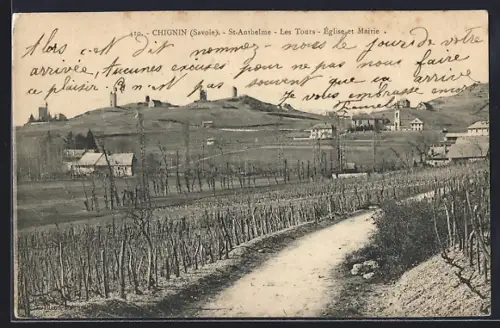 410. - CHIGNIN (Savoie). - St-Anthelme - Les Tours - Église et Mairie.
Alors c'est dit nommez-nous le jour de votre
arrivée, Aucunes excuses pour ne pas nous faire
ce plaisir. Ce n'est pas souvent que ça arrive
Je vous embrasse